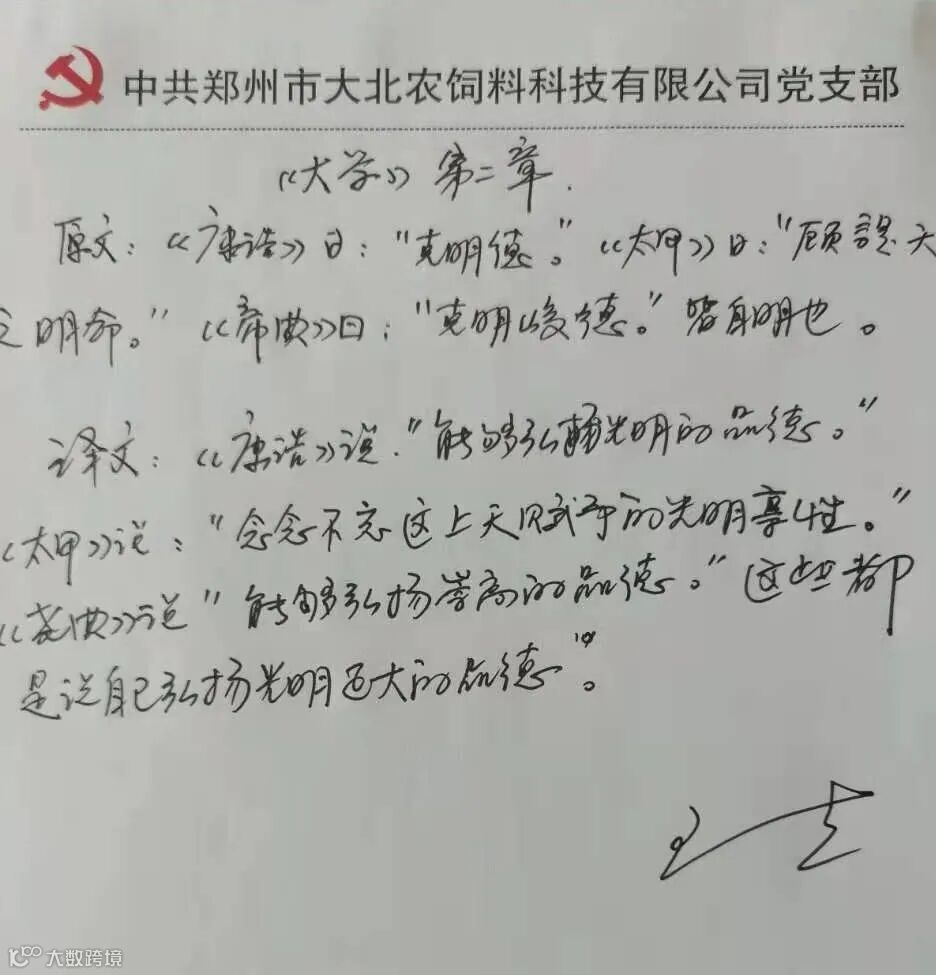 中共郑州市大北农饲料科技有限公司党支部
《大学》第二章.
原文：《康诰》曰：“克明德。”《太甲》曰：“顾諟天
之明命。”《帝典》曰：“克明峻德。”皆自明也。
译文：《康诰》说.“能够弘扬光明的品德。”
《太甲》说：“念念不忘这上天赋予的光明享性。”
《尧典》说“能够弘扬崇高的品德。”这些都
是说自己弘扬光明正大的品德”。
大数跨境